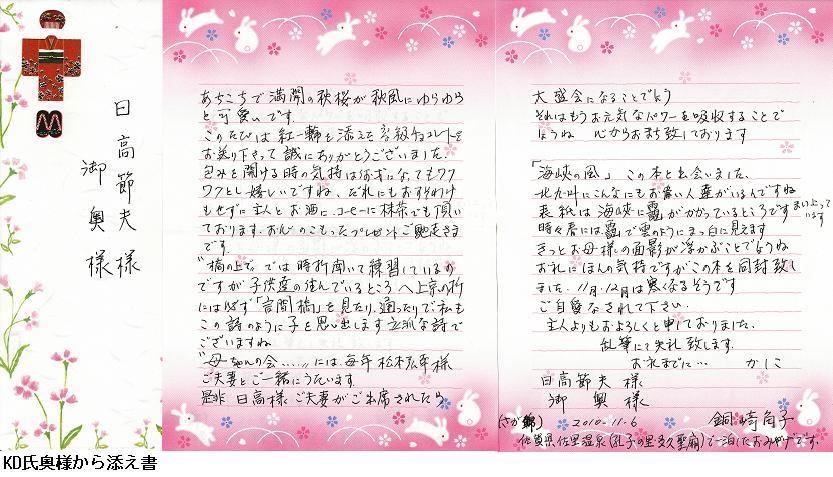 日高節夫様
御奥様
あちこちで満開の秋桜が秋風にゆらゆら
と可愛いです。
このたびは紅一輪を添えた高級チョコレートを
お送り下さって誠にありがとうございました。
包みを開ける時の気持はなってもワク
ワクとし嬉しいですね、だれにもおすそわけ
もせずに主人とお酒に、コーヒーに抹茶でも頂い
ております。おんのこもったプレゼントご馳走さま
です。
"橋の上で"では時折聞いて練習しているの
ですが子供達の住んでいるところへ上京の折
には必ず「言問橋」を見たり、通ったりで、私も
この詩のように子を思い出します立派な詩で
ございますね
"母ちゃんの会……"には、毎年松本広幸様
ご夫妻とご一緒にうたいます。
是非日高様ご夫妻がご出席されたら
大盛会になることでしょう
それはもうお元気なパワーを吸収することで
しょうね 心からおまち致しております
「海峡の風」この本と出会いました。
北九州にこんなにもお偉い人達がいるんですね
表紙は海峡に靄がかかっているところです
まい上って
います
時々春には靄で雲のようにまっ白に見えます
きっとお母様の面影が浮かぶことでしょうね
お礼にほんの気持ですがこの本を同封致し
ました。11月、12月は寒くなるそうです
ご自愛なされて下さい。
主人よりもよろしくと申しておりました。
乱筆にて失礼致します。
お礼までに… かしこ
日高節夫様
御奥様
2010.11.6
佐賀県佐里温泉(孔子の里多久聖廟)で一泊におみやげです。
KD氏奥様から添え書